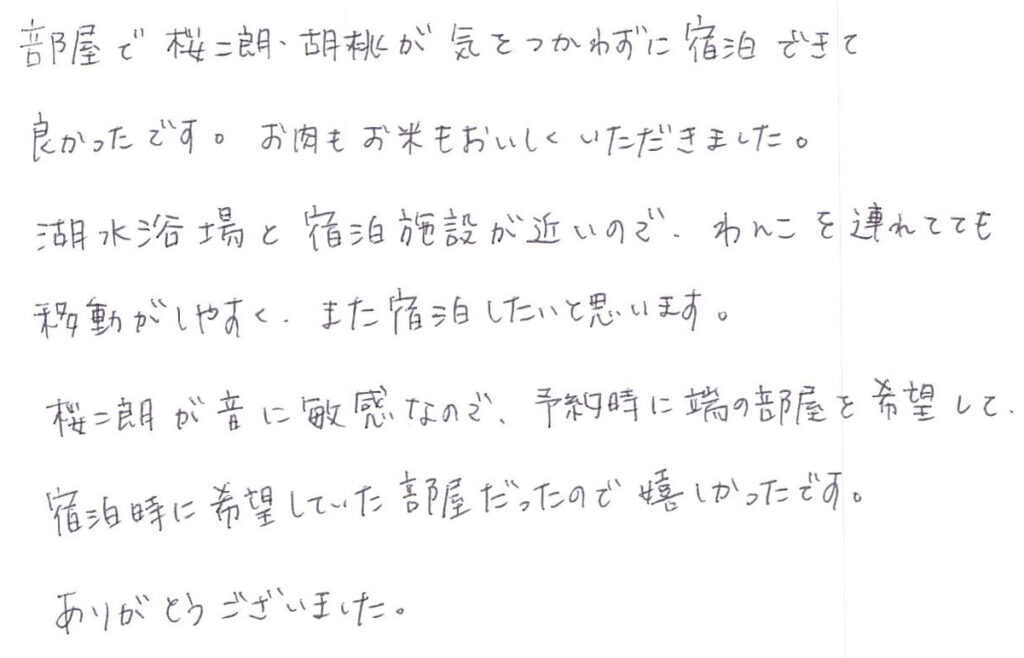 部屋で桜二朗・胡桃が気をつかわずに宿泊できて
良かったです。お肉もお米もおいしくいただきました。
湖水浴場と宿泊施設が近いので、わんこを連れてても
移動がしやすく、また宿泊したいと思います。
桜二朗が音に敏感なので、予約時に端の部屋を希望して、
宿泊時に希望していた部屋だったので嬉しかったです。
ありがとうございました。